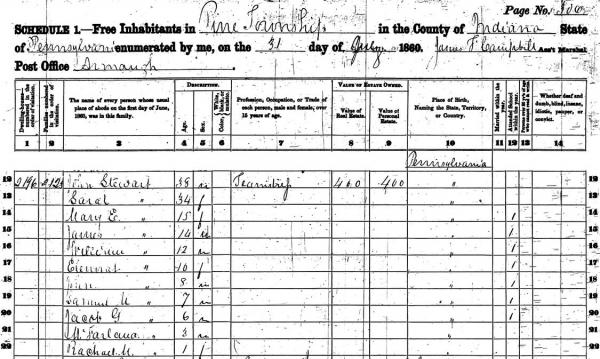 Page No.
SCHEDULE 1.—Free Inhabitants in Pine Township in the County of Indiana State
of Pennsylvani enumerated by me, on the 31 day of July 1860. James F Campbell Ass't Marshal
Post Office Armaugh
DESCRIPTION. VALUE OF ESTATE OWNED.
Dwelling-houses—numbered in the order of visitation.
Families numbered in the order of visitation.
The name of every person whose usual place of abode on the first day of June, 1860, was in this family.
Age. Sex. Color,
Profession, Occupation, or Trade of each person, male and female, over 15 years of age.
Value of Real Estate. Value of Personal Estate.
Place of Birth, Naming the State, Territory, or Country.
Married within the year. Attended School within the year.
Whether deaf and dumb, blind, insane, idiotic, pauper, or convict.
1 2 3 4 5 6 7 8 9 10 11 12 13 14
Pennsylvania
12 Stewart 38 m 400 400 " 12
13 Sarah " 34 f " 13
14 Mary E. " 15 f " 1 14
15 James " 14 m " 1 15
16 William " 12 m " 1 16
17 " 10 f " 1 17
18 " 8 m " 1 18
19 Samuel " 7 m " 1 19
20 Jacob G " 6 m " 1 20
21 McFarland " 3 m " 21
22 Rachael M. " 1 f " 22